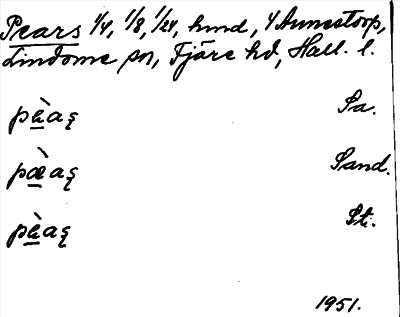 Pears 1/4, 1/8, 1/24, hmd, Y Annestorp,
Lindome sn, Fjäre hd, Hall. l.
pèas̨ Sa.
pæ̀as̨ Sand.
pèas̨ St.
1951.